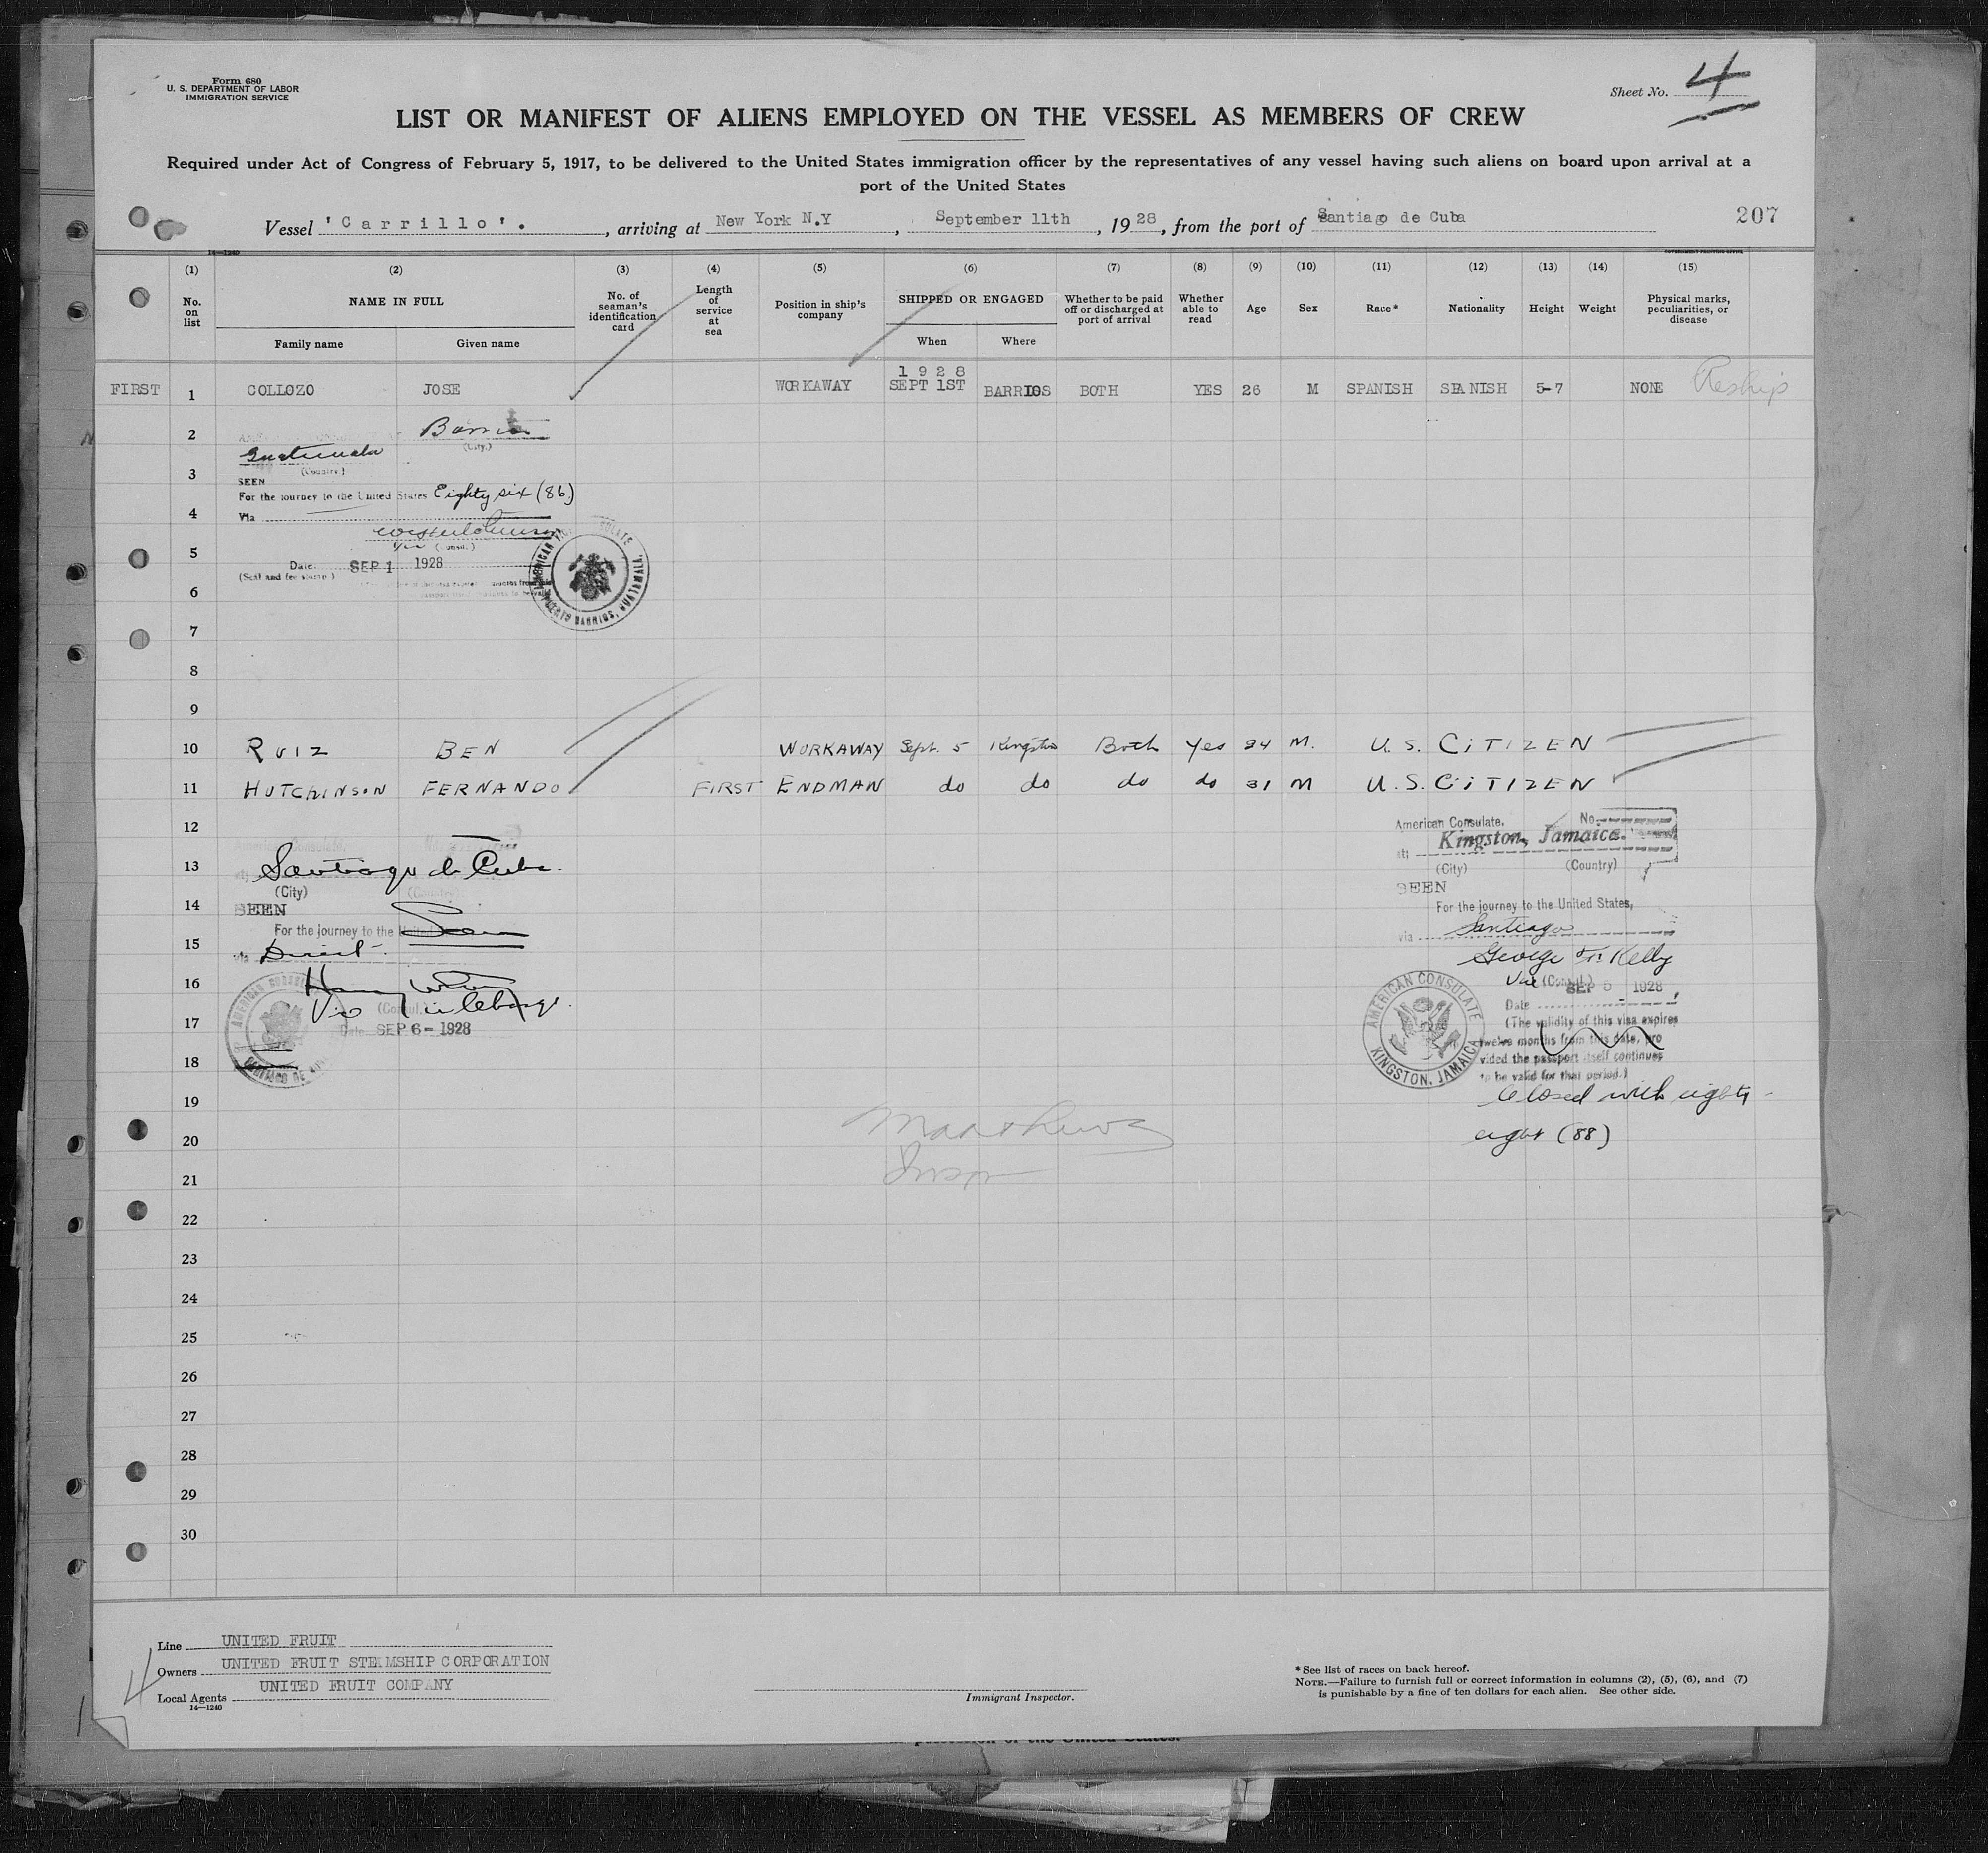 Form 680
U. S. DEPARTMENT OF LABOR
IMMIGRATION SERVICE
Sheet No. 4
LIST OR MANIFEST OF ALIENS EMPLOYED ON THE VESSEL AS MEMBERS OF CREW
Required under Act of Congress of February 5, 1917, to be delivered to the United States immigration officer by the representatives of any vessel having such aliens on board upon arrival at a
port of the United States
Vessel 'Carrillo'. , arriving at New York N.Y , September 11th , 1928 , from the port of Santiago de Cuba 207
14—1240 GOVERNMENT PRINTING OFFICE
(1) (2) (3) (4) (5) (6) (7) (8) (9) (10) (11) (12) (13) (14) (15)
No. on list NAME IN FULL No. of seaman's identification card Length of service at sea Position in ship's company SHIPPED OR ENGAGED Whether to be paid off or discharged at port of arrival Whether able to read Age Sex Race* Nationality Height Weight Physical marks, peculiarities, or disease
Family name Given name When Where
1928
FIRST 1 COLLOZO JOSE WORKAWAY SEPT 1ST BARRIOS BOTH YES 26 M SPANISH SPANISH 5-7 NONE Reship
2 Barrios
(City)
Guatemala
3 (Country)
SEEN
For the journey to the United States Eighty six (86)
4 Via
5 (Consul)
Date: SEP 1 1928
(Seal and fee stamp)
AMERICAN VICE CONSULATE PUERTO BARRIOS, GUATEMALA.
6
7
8
9
10 RUIZ BEN WORKAWAY Sept. 5 Kingston Both Yes 24 M. U.S. CITIZEN
11 HUTCHINSON FERNANDO FIRST ENDMAN do do do do 31 M U.S. CITIZEN
12 American Consulate, No.
Kingston, Jamaica.
13 Santiago de Cuba.
(City) (Country)
(City) (Country)
SEEN
14 SEEN
For the journey to the United States,
For the journey to the United
via Santiago
15 via Direct
George F. Kelly
16
Vice (Consul)
SEP 5 1928
(Consul)
Date
17 Date SEP 6 - 1928
(The validity of this visa expires
twelve months from this date, pro
18 vided the passport itself continues
to be valid for that period.)
AMERICAN CONSULATE KINGSTON, JAMAICA
19 Closed with eighty
20 eight (88)
21
22
23
24
25
26
27
28
29
30
Line UNITED FRUIT
Owners UNITED FRUIT STEAMSHIP CORPORATION
Local Agents UNITED FRUIT COMPANY
14—1240
4
Immigrant Inspector.
*See list of races on back hereof.
NOTE.—Failure to furnish full or correct information in columns (2), (5), (6), and (7)
is punishable by a fine of ten dollars for each alien. See other side.